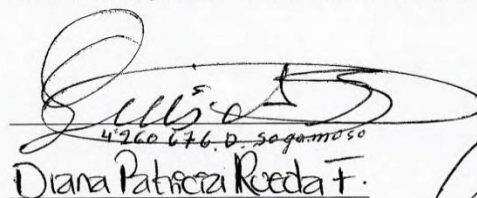 4'260 676. D. Sogamoso
Diana Patricia Rueda F.